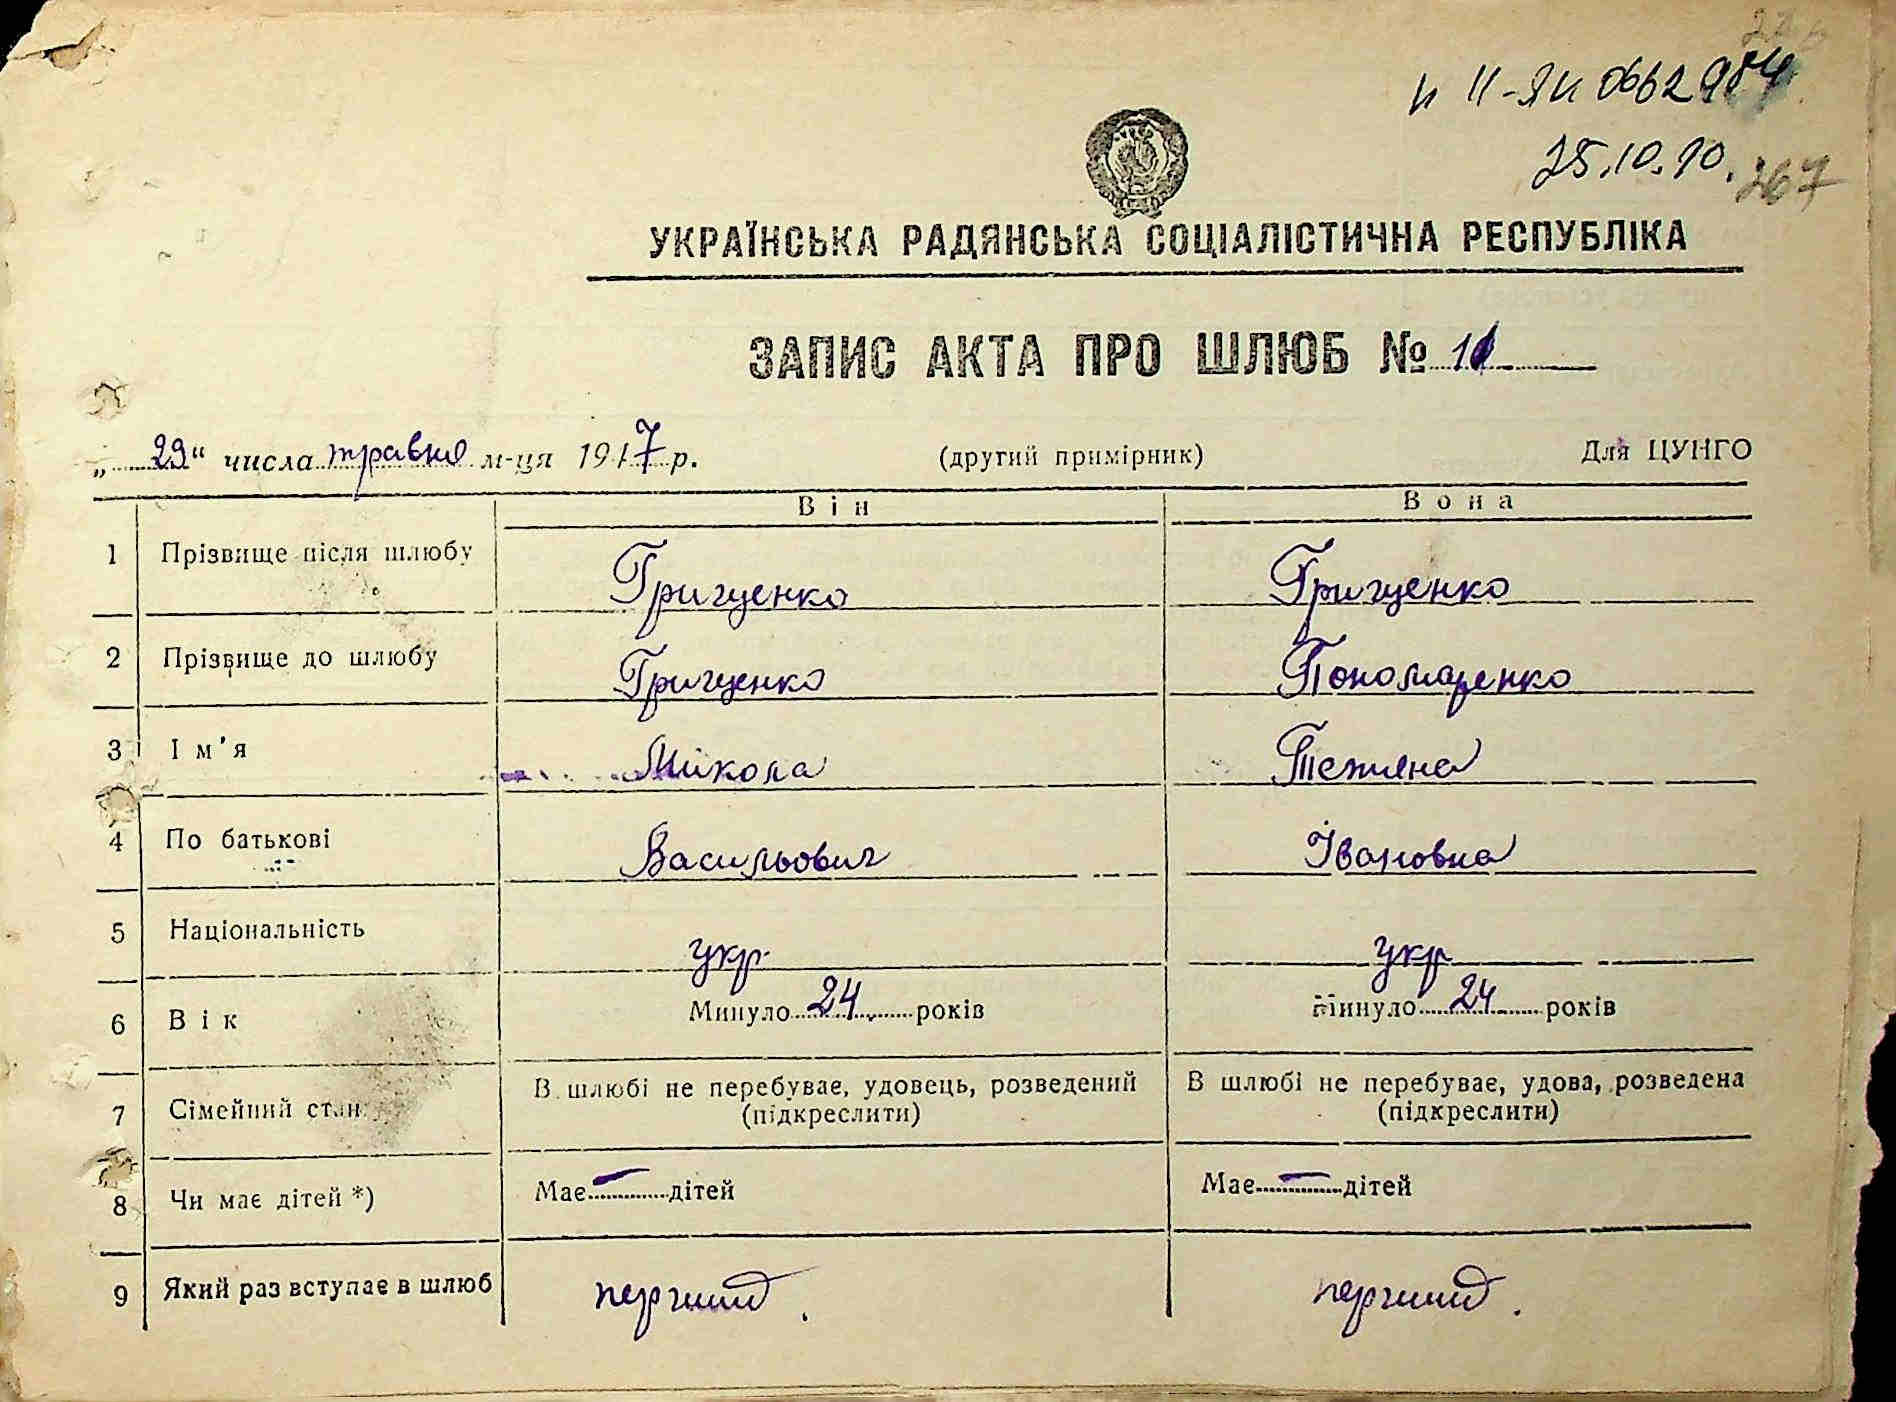 и II-ЯИ 0662984
25.10.90.
267
УКРАЇНСЬКА РАДЯНСЬКА СОЦІАЛІСТИЧНА РЕСПУБЛІКА
ЗАПИС АКТА ПРО ШЛЮБ № 11
„29“ числа травня м-ця 1947 р. (другий примірник) Для ЦУНГО
Він Вона
1 Прізвище після шлюбу Грищенко Грищенко
2 Прізвище до шлюбу Грищенко Пономаренко
3 Ім'я Микола Тетяна
4 По батькові Васильович Івановна
5 Національність укр. укр
6 Вік Минуло 24 років Минуло 24 років
7 Сімейний стан В шлюбі не перебуває, удовець, розведений (підкреслити) В шлюбі не перебуває, удова, розведена (підкреслити)
8 Чи має дітей *) Має — дітей Має — дітей
9 Який раз вступає в шлюб перший. перший.